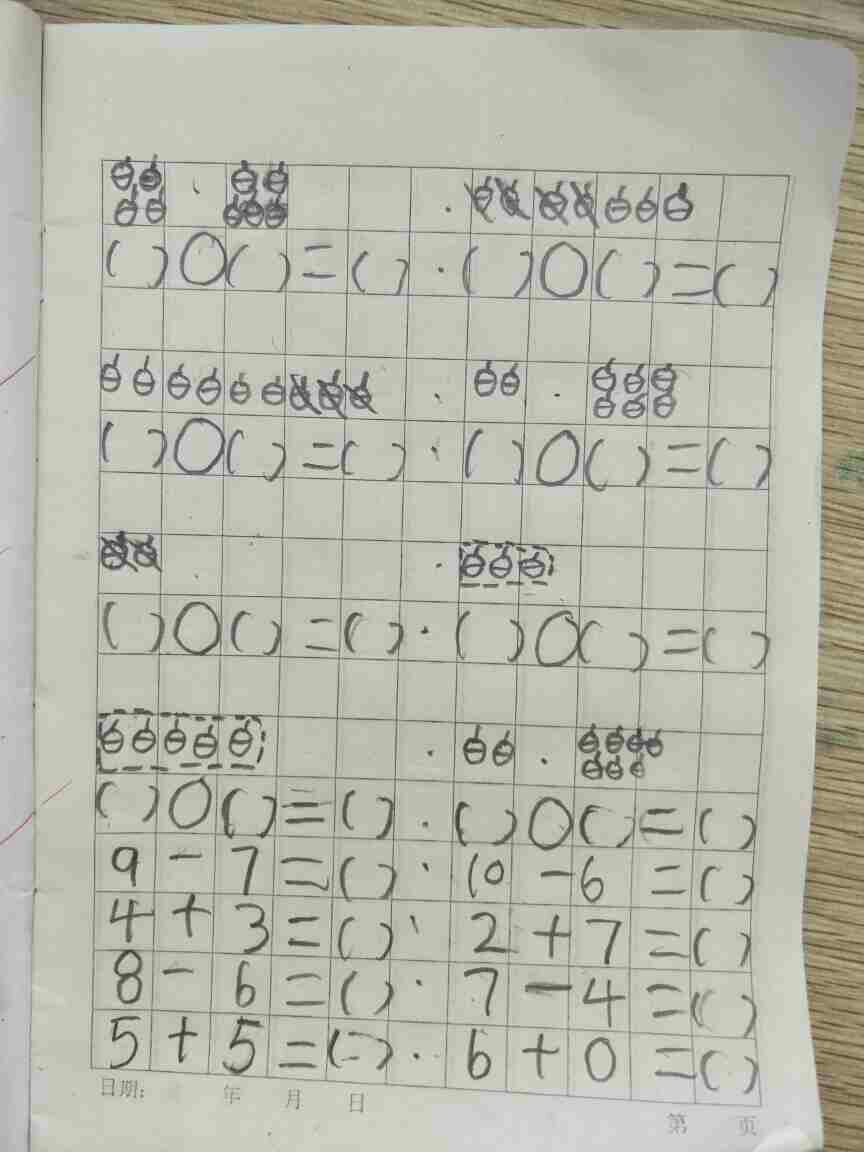 ( )○( )=( )·( )○( )=( )
( )○( )=( )·( )○( )=( )
( )○( )=( )·( )○( )=( )
( )○( )=( )·( )○( )=( )
9 - 7 =( )·10 - 6 =( )
4 + 3 =( )·2 + 7 =( )
8 - 6 =( )·7 - 4 =( )
5 + 5 =( )·6 + 0 =( )
日期: 年 月 日
第 页